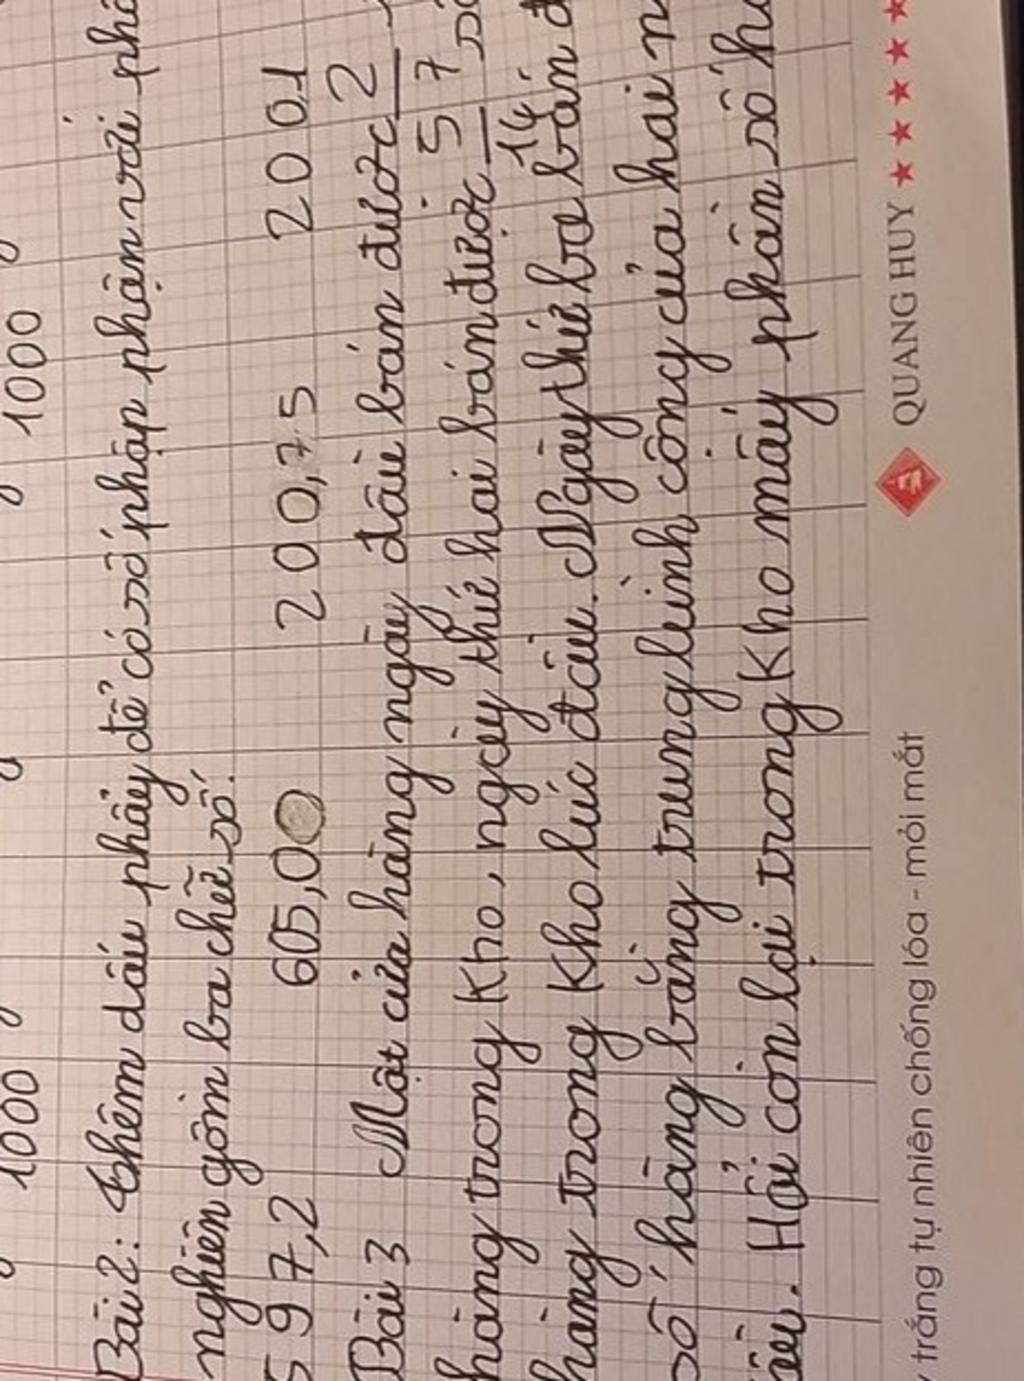 1000 1000
Bài 2: Thêm dấu phẩy để có số thập phận với phâ
nghiên gồm ba chữ số.
597,2 605,0 200,75 2001
Bài 3 Một cửa hàng ngày đầu bán được 2/5
hàng trong kho, ngày thứ hai bán được 7/14 số
hàng trong kho lúc đầu. Ngày thứ ba bán đ
số hàng bằng trung bình cộng của hai n
đầu. Hỏi còn lại trong kho mấy phần số hà
trắng tự nhiên chống lóa - mỏi mắt QUANG HUY ★★★★